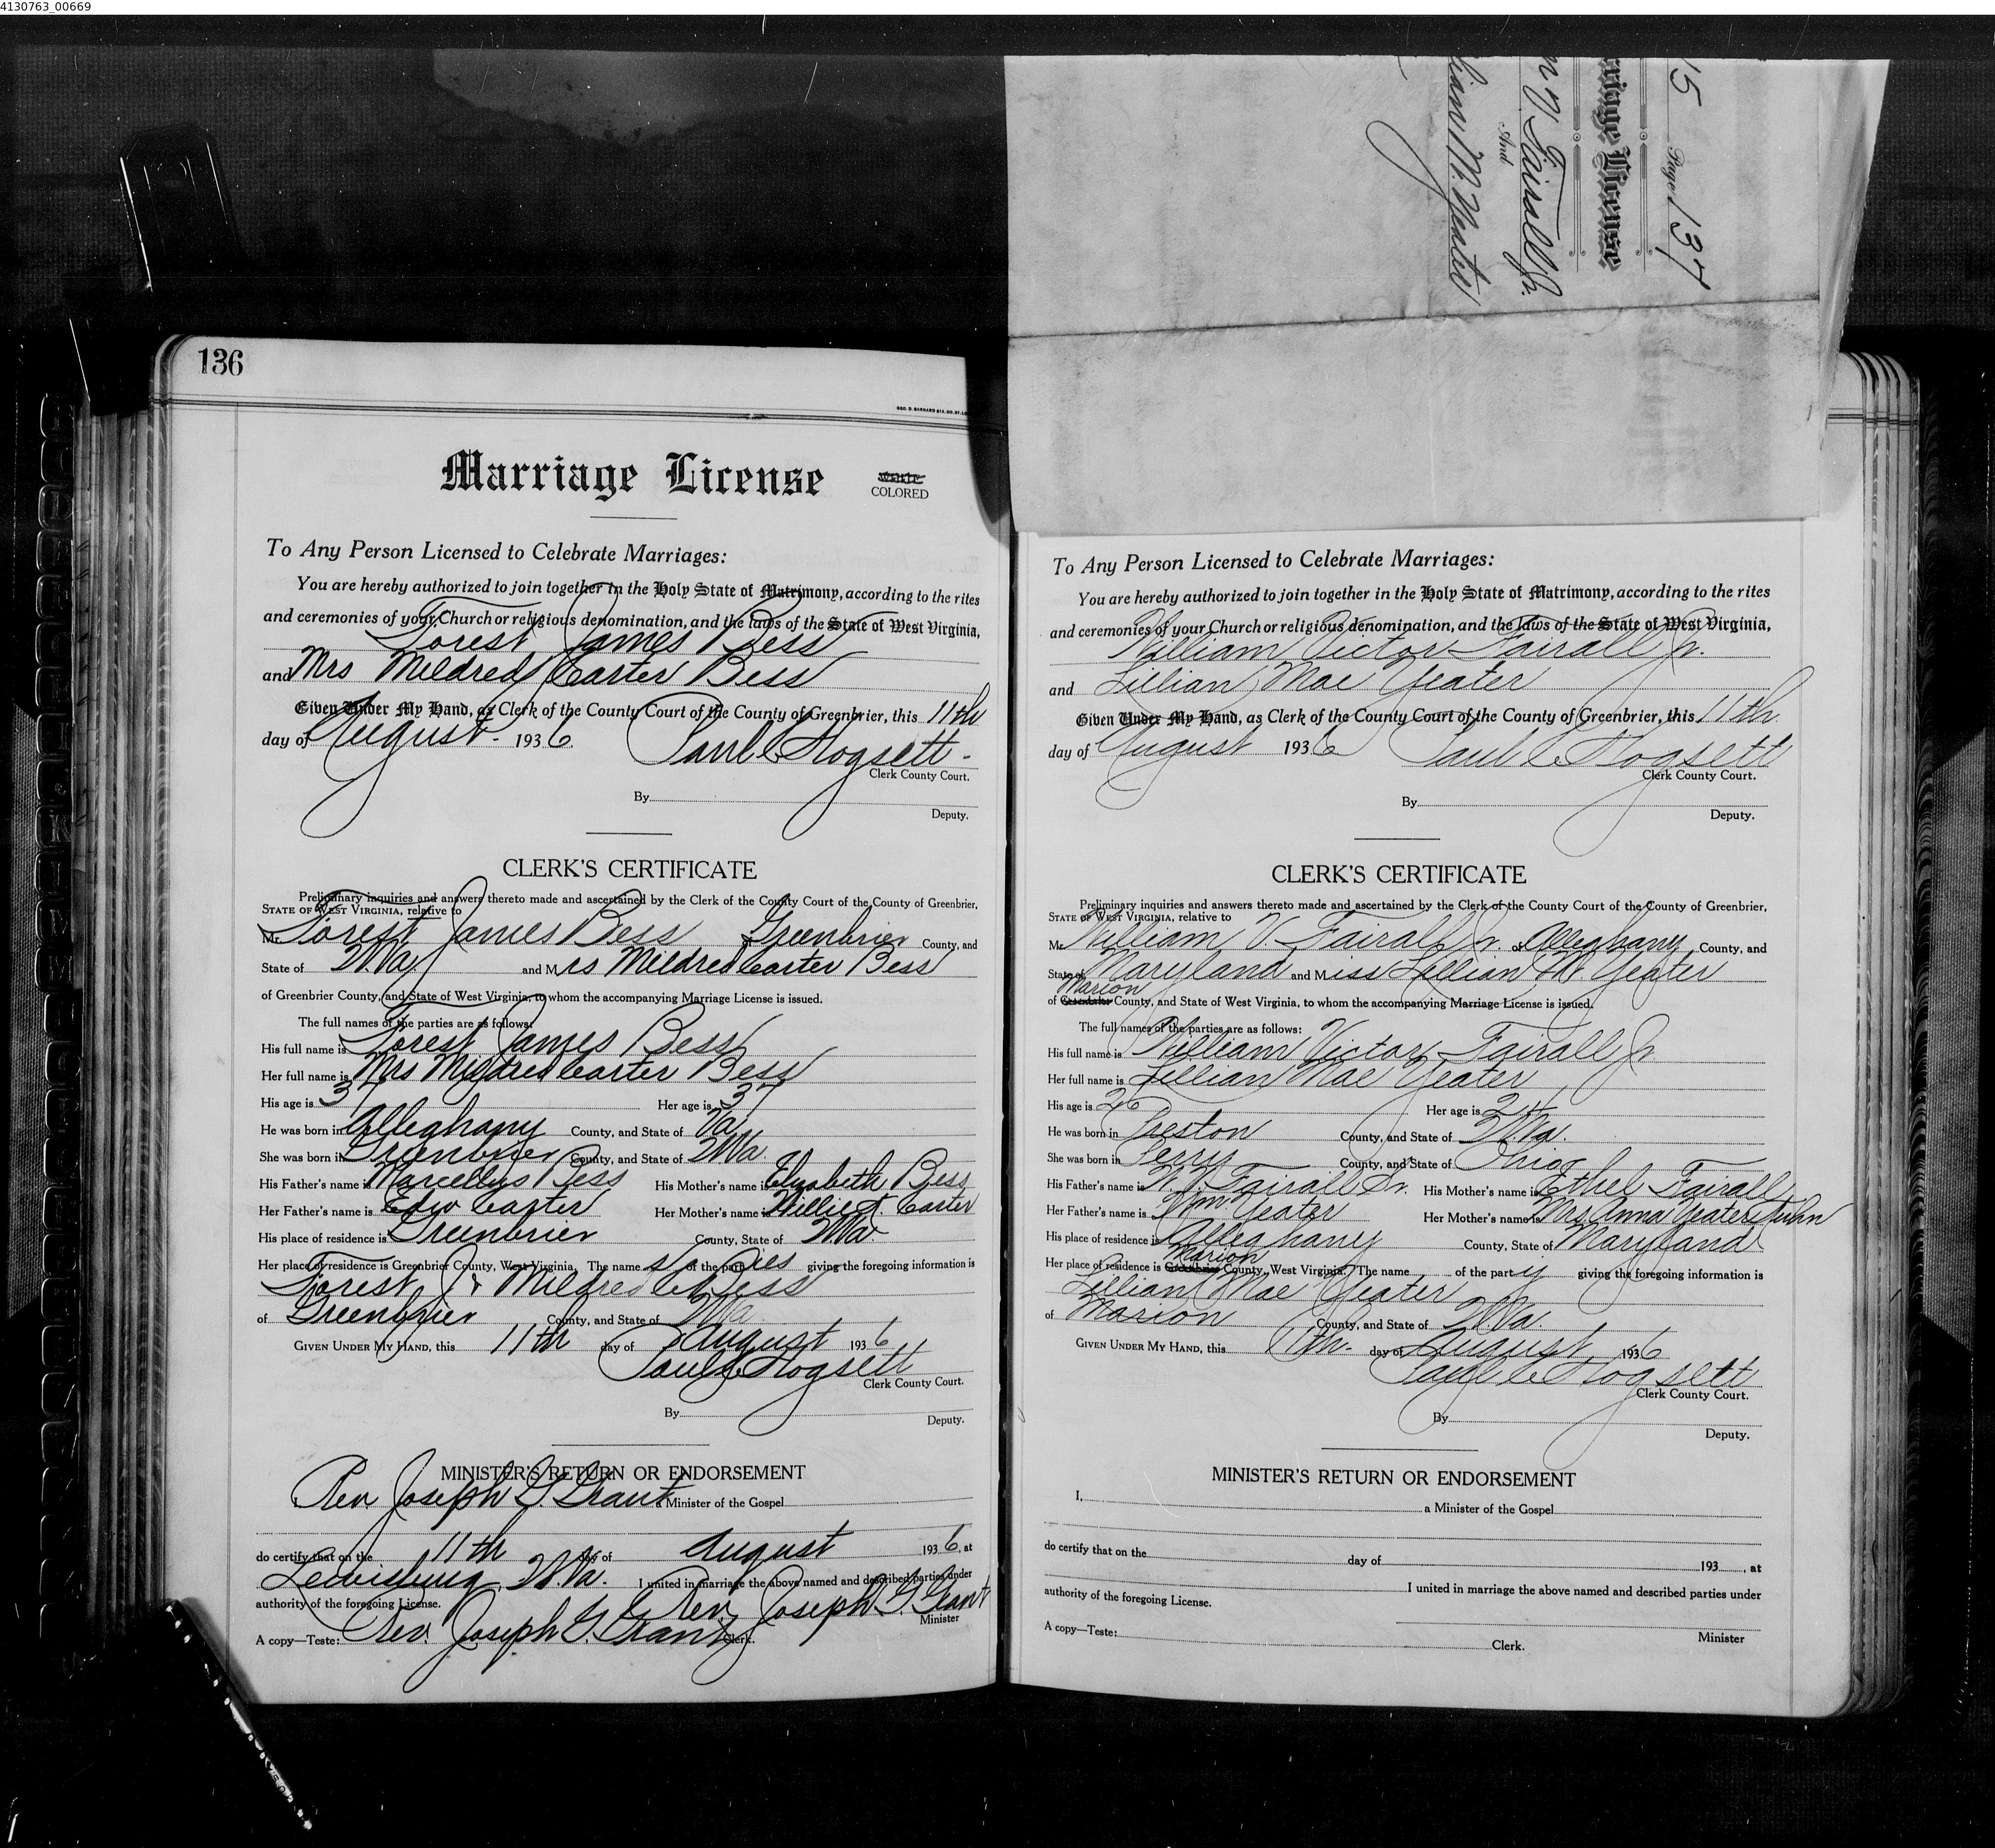 4130763_00669
136
GEO. D. BARNARD STA. CO. ST. L
Marriage License
White
COLORED
To Any Person Licensed to Celebrate Marriages:
You are hereby authorized to join together in the Holy State of Matrimony, according to the rites
and ceremonies of your Church or religious denomination, and the laws of the State of West Virginia,
Forest James Bess
and Mrs Mildred Carter Bess
Given Under My Hand, as Clerk of the County Court of the County of Greenbrier, this 11th
day of August - 1936. Paul C Hogsett -
Clerk County Court.
By
Deputy.
CLERK'S CERTIFICATE
Preliminary inquiries and answers thereto made and ascertained by the Clerk of the County Court of the County of Greenbrier,
STATE OF WEST VIRGINIA, relative to
Mr. Forest James Bess of Greenbrier County, and
State of W.Va. and Mrs Mildred Carter Bess
of Greenbrier County, and State of West Virginia, to whom the accompanying Marriage License is issued.
The full names of the parties are as follows:
His full name is Forest James Bess
Her full name is Mrs Mildred Carter Bess
His age is 37 Her age is 37
He was born in Alleghany County, and State of Va.
She was born in Greenbrier County, and State of W.Va.
His Father's name is Marcellus Bess His Mother's name is Elizabeth Bess
Her Father's name is Edw Carter Her Mother's name is Willie A. Carter
His place of residence is Greenbrier County, State of W.Va.
Her place of residence is Greenbrier County, West Virginia. The name s of the parties giving the foregoing information is
Forest J. & Mildred C Bess
of Greenbrier County, and State of W.Va
GIVEN UNDER MY HAND, this 11th day of August 1936
Paul C Hogsett
Clerk County Court.
By
Deputy.
MINISTER'S RETURN OR ENDORSEMENT
I, Rev. Joseph G Grant a Minister of the Gospel
do certify that on the 11th day of August 1936, at
Lewisburg, W.Va. I united in marriage the above named and described parties under
authority of the foregoing License. Rev. Joseph G. Grant
Minister
A copy—Teste: Rev. Joseph G. Grant Clerk.
15 Page 137
rriage License
m V. Fairall Jr.
And
lian M. Yeater
To Any Person Licensed to Celebrate Marriages:
You are hereby authorized to join together in the Holy State of Matrimony, according to the rites
and ceremonies of your Church or religious denomination, and the laws of the State of West Virginia,
William Victor Fairall Jr.
and Lillian Mae Yeater
Given Under My Hand, as Clerk of the County Court of the County of Greenbrier, this 11th.
day of August 1936 Paul C Hogsett
Clerk County Court.
By
Deputy.
CLERK'S CERTIFICATE
Preliminary inquiries and answers thereto made and ascertained by the Clerk of the County Court of the County of Greenbrier,
STATE OF WEST VIRGINIA, relative to
Mr. William V. Fairall Jr. of Alleghany County, and
State of Maryland and Miss Lillian M. Yeater
Marion
of Greenbrier County, and State of West Virginia, to whom the accompanying Marriage License is issued.
The full names of the parties are as follows:
His full name is William Victor Fairall Jr
Her full name is Lillian Mae Yeater
His age is 26 Her age is 21
He was born in Preston County, and State of W.Va.
She was born in Perry County, and State of Ohio
His Father's name is W.V. Fairall Sr. His Mother's name is Ethel Fairall
Her Father's name is Wm. Yeater Her Mother's name is Mrs. Anna Yeater Kuhn
His place of residence is Alleghany County, State of Maryland
Marion
Her place of residence is Greenbrier County, West Virginia. The name of the party giving the foregoing information is
Lillian Mae Yeater
of Marion County, and State of W.Va.
GIVEN UNDER MY HAND, this 11th. day of August 1936
Paul C Hogsett
Clerk County Court.
By
Deputy.
MINISTER'S RETURN OR ENDORSEMENT
I, a Minister of the Gospel
do certify that on the day of 193 , at
I united in marriage the above named and described parties under
authority of the foregoing License.
Minister
A copy—Teste: Clerk.